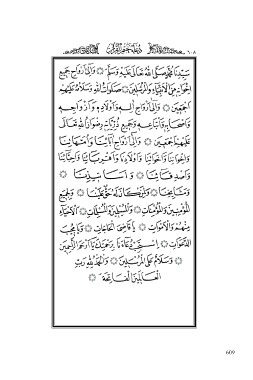 سَيِّدِنَا مُحَمَّدٍ صَلَّى اللهُ تَعَالٰى عَلَيْهِ وَسَلَّمَ ۞ وَاِلٰى اَرْوَاحِ جَمِيعِ
اِخْوَانِهِ مِنَ الْاَنْبِيَاءِ وَالْمُرْسَلِينَ ۞ صَلَوَاتُ اللهِ وَسَلَامُهُ عَلَيْهِمْ
اَجْمَعِينَ ۞ وَاِلٰى اَرْوَاحِ اٰلِهِ وَاَوْلَادِهِ وَاَزْوَاجِهِ
وَاَصْحَابِهِ وَاَتْبَاعِهِ وَجَمِيعِ ذُرِّيَّاتِهِ رِضْوَانُ اللهِ تَعَالٰى
عَلَيْهِمْ اَجْمَعِينَ ۞ وَاِلٰى اَرْوَاحِ اٰبَائِنَا وَاُمَّهَاتِنَا
وَاِخْوَانِنَا وَاَخَوَاتِنَا وَاَوْلَادِنَا وَاَقْرِبَائِنَا وَاَحِبَّائِنَا
وَاَصْدِقَائِنَا ۞ وَاَسَاتِيذِنَا ۞
وَمَشَايِخِنَا ۞ وَلِمَنْ كَانَ لَهُ حَقٌّ عَلَيْنَا ۞ وَلِجَمِيعِ
الْمُؤْمِنِينَ وَالْمُؤْمِنَاتِ ۞ وَالْمُسْلِمِينَ وَالْمُسْلِمَاتِ ۞ اَلْاَحْيَاءِ
مِنْهُمْ وَالْاَمْوَاتِ ۞ يَا قَاضِيَ الْحَاجَاتِ ۞ وَيَا مُجِيبَ
الدَّعَوَاتِ ۞ اِسْتَجِبْ دُعَاءَنَا بِرَحْمَتِكَ يَا اَرْحَمَ الرَّاحِمِينَ
۞ وَسَلَامٌ عَلَى الْمُرْسَلِينَ ۞ وَالْحَمْدُ لِلّٰهِ رَبِّ
الْعَالَمِينَ اَلْفَاتِحَةَ ۞
609